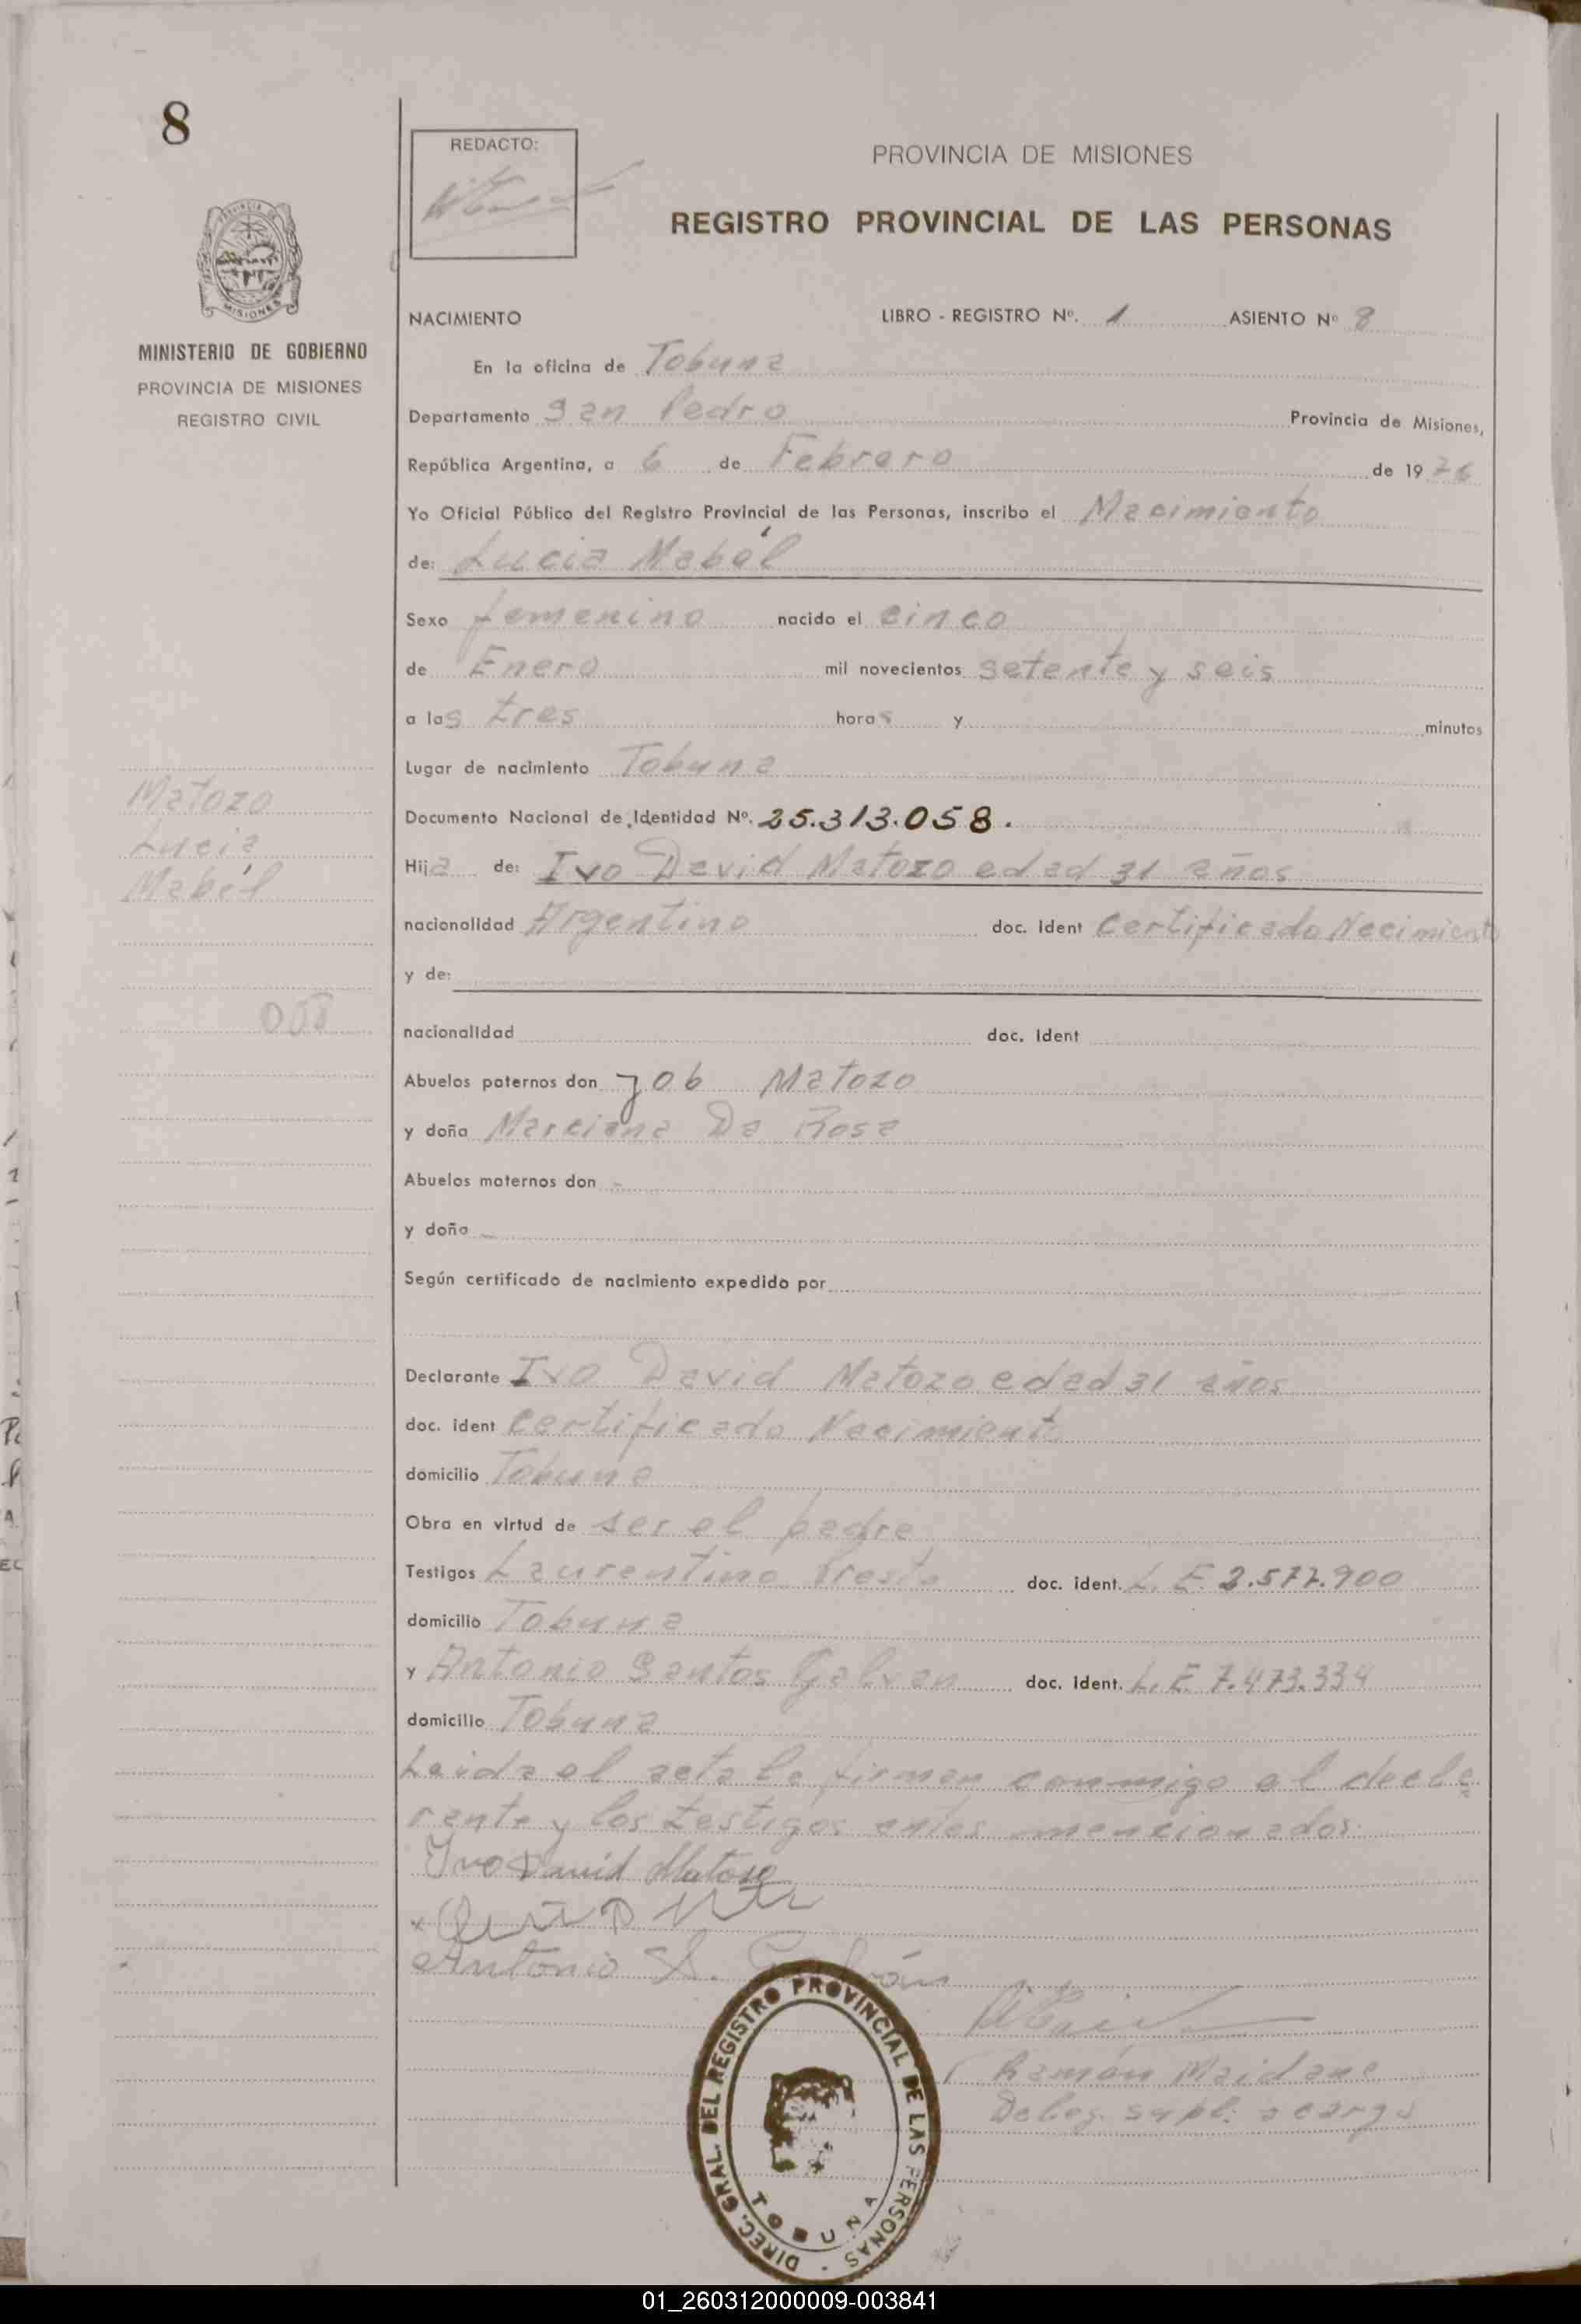 8
REDACTO:
PROVINCIA DE MISIONES
REGISTRO PROVINCIAL DE LAS PERSONAS
MISIONES
MINISTERIO DE GOBIERNO
PROVINCIA DE MISIONES
REGISTRO CIVIL
NACIMIENTO LIBRO - REGISTRO Nº. 1 ASIENTO Nº 8
En la oficina de Tobuna
Departamento San Pedro Provincia de Misiones,
República Argentina, a 6 de Febrero de 1976
Yo Oficial Público del Registro Provincial de las Personas, inscribo el Nacimiento
de: Lucia Mabél
Sexo femenino nacido el cinco
de Enero mil novecientos setenta y seis
a las tres horas y minutos
Lugar de nacimiento Tobuna
Matozo
Lucia
Mabél
Documento Nacional de Identidad Nº. 25.313.058.
Hija de: Ivo David Matozo edad 31 años
nacionalidad Argentino doc. ident Certificado Nacimiento
y de:
058
nacionalidad doc. ident
Abuelos paternos don Job Matozo
y doña Marciana Da Rosa
Abuelos maternos don -
y doña -
Según certificado de nacimiento expedido por
Declarante Ivo David Matozo edad 31 años
doc. ident Certificado Nacimiento
domicilio Tobuna
Obra en virtud de ser el padre
Testigos Laurentino doc. ident. L. E. 2.577.900
domicilio Tobuna
y Antonio Santos Galvan doc. ident. L. E. 7.473.334
domicilio Tobuna
Leida el acta la firman conmigo el decla
rante y los testigos antes mencionados.
Ivo David Matoso
Antonio S. Galván
Ramón Maidana
Deleg. supl. a cargo
DIREC. GRAL. DEL REGISTRO PROVINCIAL DE LAS PERSONAS - TOBUNA
01_260312000009-003841